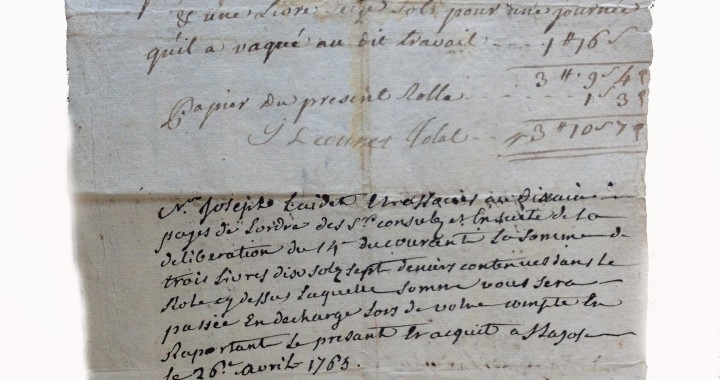 & une Livre seize Sols pour une journée
qu'il a vaqué au dit travail - - - 1 ₶ 16 s
3 ₶ 9 s 4 d
Papier du present Rolle - - - 1 s 3 d
Total - - 3 ₶ 10 s 7 d
Mr. Joseph
payes de Lordre des Srs. consuls et Ensuitte de la
deliberation du 14e. du courant La Somme de
trois Livres dix Solz sept deniers contenues dans le
Role cy dessus Laquelle Somme vous sera
passée En decharge Lors de votre compte En
Raportant Le presant Et acquit a
le 26e. avril 1763.